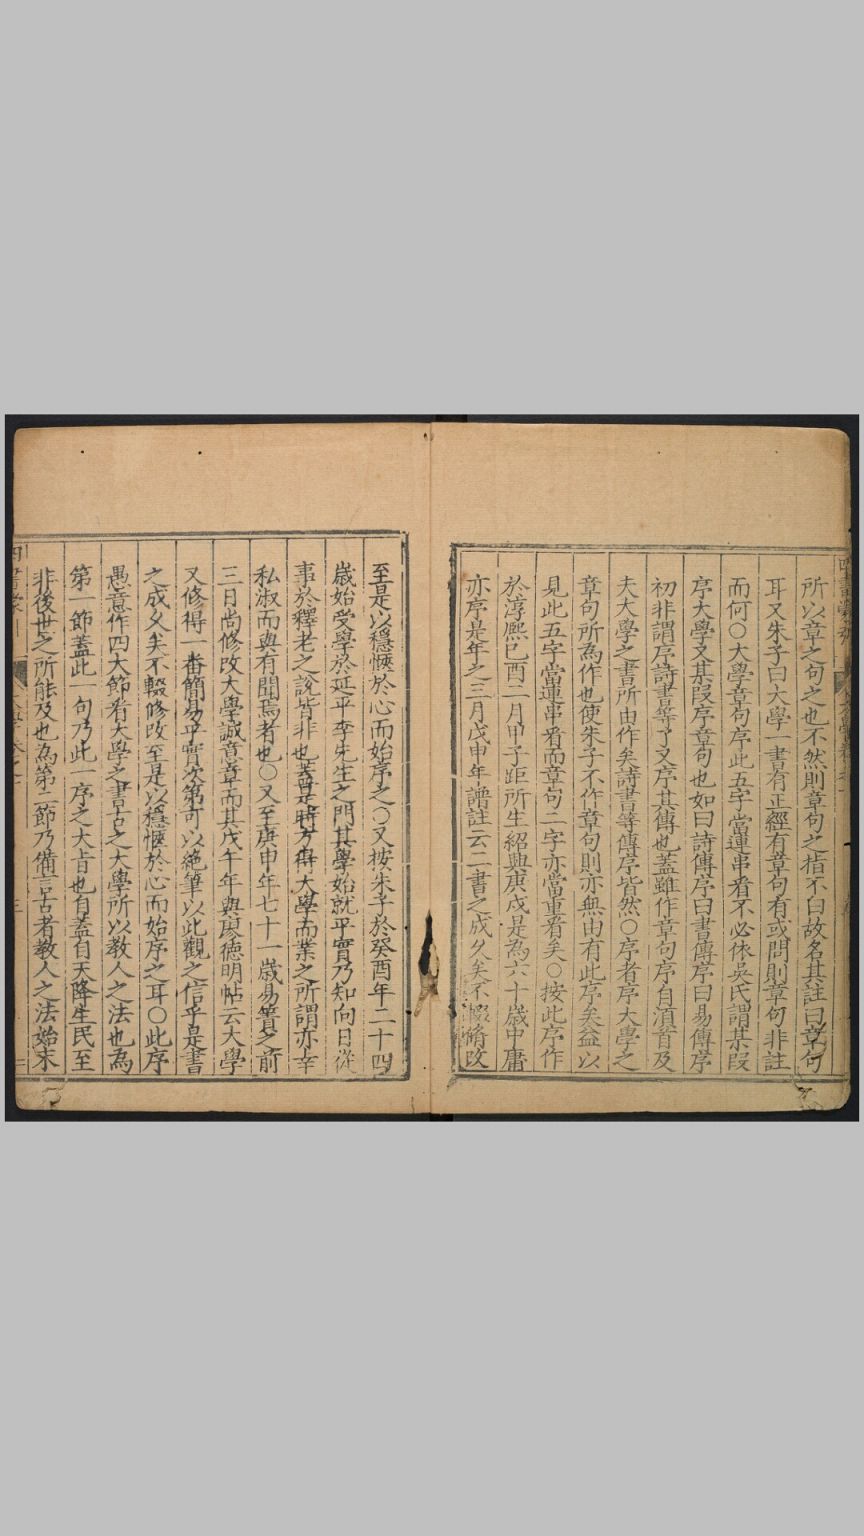 所以章之句之也不然則章句之指不白故名其註曰章句
耳又朱子曰大學一書有正經有章句有或問則章句非註
而何○大學章句序此五字當連串看不必依吳氏謂某段
序大學又某段序章句也如曰詩傳序曰書傳序曰易傳序
初非謂序詩書等了又序其傳也蓋雖作章句序自須首及
夫大學之書所由作矣詩書等傳序皆然○序者序大學之
章句所為作也使朱子不作章句則亦無由有此序矣益以
見此五字當連串看而章句二字亦當重看矣○按此序作
於淳熙己酉二月甲子距所生紹興庚戌是為六十歲中庸
亦序是年之三月戊申年譜註云二書之成久矣不輟脩改
至是以穩愜於心而始序之○又按朱子於癸酉年二十四
歲始受學於延平李先生之門其學始就平實乃知向日從
事於釋老之說皆非也蓋是時方得大學而業之所謂亦幸
私淑而與有聞焉者也○又至庚申年七十一歲易簀之前
三日尚修改大學誠意章而其戊午年與廖德明帖云大學
又修得一番簡易平實次第可以絕筆以此觀之信乎是書
之成久矣不輟修改至是以穩愜於心而始序之耳○此序
愚意作四大節看大學之書古之大學所以教人之法也為
第一節蓋此一句乃此一序之大旨也自蓋自天降生民至
非後世之所能及也為第二節乃備言古者教人之法始末